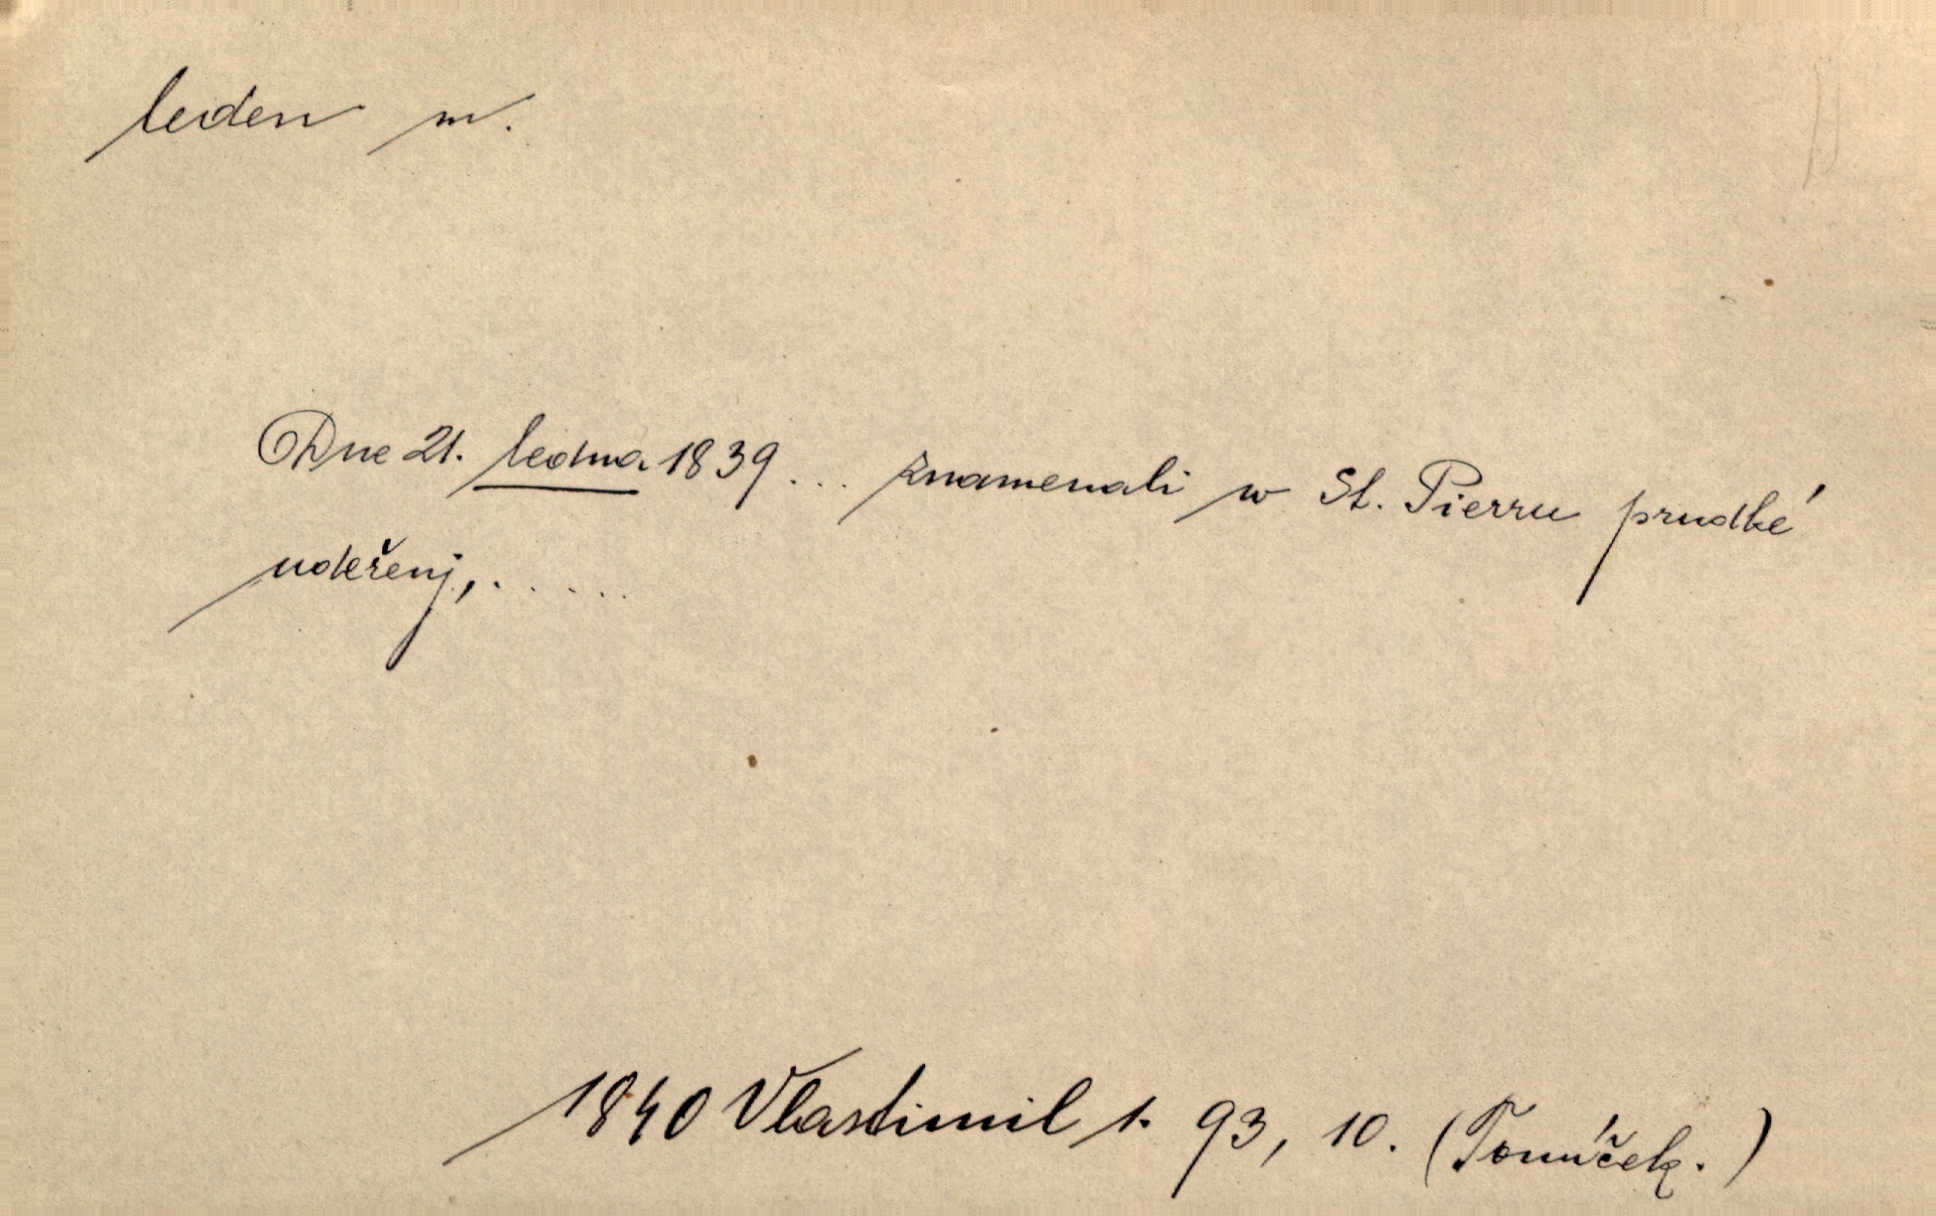 leden m.
Dne 21. ledna 1839... znamenali w St. Pierru prudké
udeřenj,......
1840 Vlastimil 1. 93, 10. (Tomíček.)